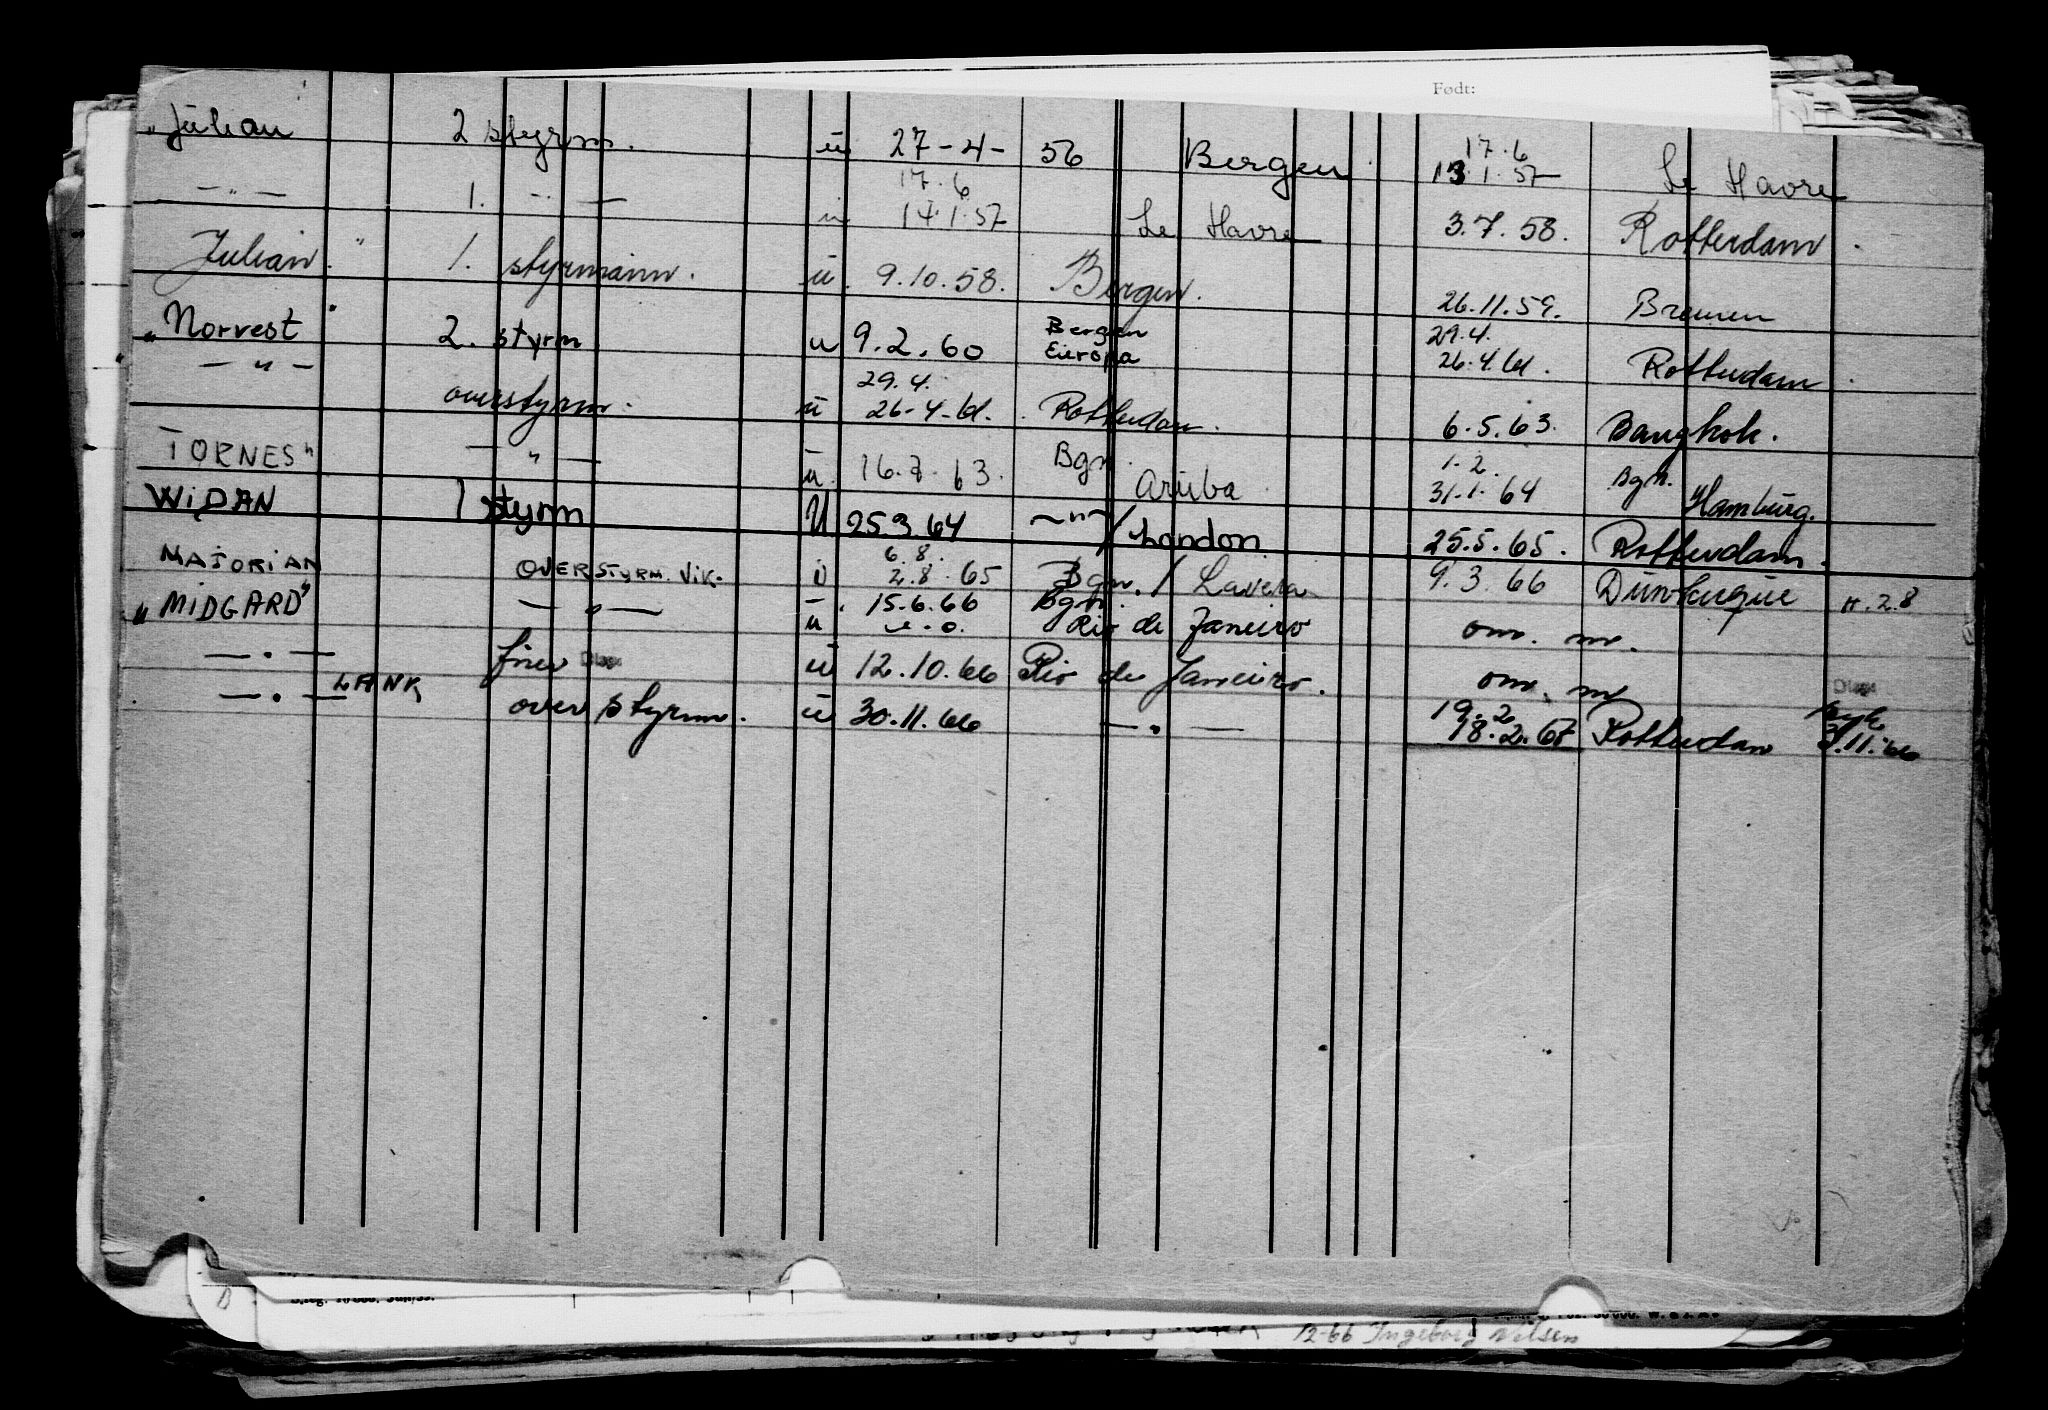 Født:
"Julian 2 styrm. u 27-4- 56 Bergen 17.6 13.1.57 Le Havre
— " — 1. — " — u 17.6 14.1.57 Le Havre 3.7.58. Rotterdam.
Julian" 1. styrmann. u. 9.10.58. Bergen. 26.11.59. Bremen
"Norvest" 2. styrm u 9.2.60 Bergen Europa 29.4. 26.4.61. Rotterdam.
— " — overstyrm. u 29.4. 26-4-61. Rotterdam. 6.5.63. Bangkok.
TORNES" — " — u. 16.7.63. Bgn. Aruba 1.2. 31.1.64 Bgn. Hamburg.
WiDAN 1 styrm U 25.3.64 — " — / London. 25.5.65. Rotterdam.
MAJORIAN OVERSTYRM. Vik. u 6.8. 2.8.65 Bgn. / Lavera 9.3.66 Dunkerque H.2.8
"MiDGARD" — " — u 15.6.66 Bgn. Rio de Janeiro om. m.
— " — fører u 12.10.66 Rio de Janeiro. om. m
— " — LANK overstyrm. u 30.11.66 — " — 19.2 18.2.67 Rotterdam syk 3.11.66
12-66 Ingeborg Nilsen